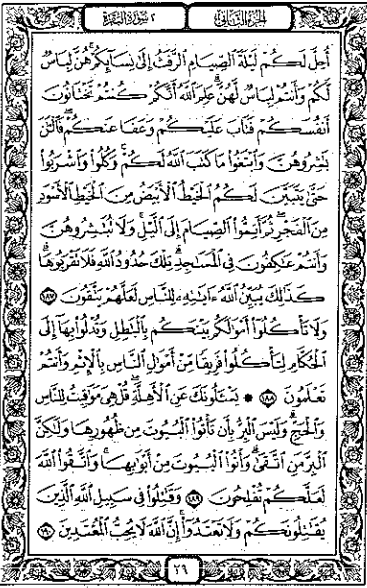 الجزء الثاني ٢ سورة البقرة
أُحِلَّ لَكُمْ لَيْلَةَ ٱلصِّيَامِ ٱلرَّفَثُ إِلَىٰ نِسَآئِكُمْ هُنَّ لِبَاسٌ
لَّكُمْ وَأَنتُمْ لِبَاسٌ لَّهُنَّ عَلِمَ ٱللَّهُ أَنَّكُمْ كُنتُمْ تَخْتَانُونَ
أَنفُسَكُمْ فَتَابَ عَلَيْكُمْ وَعَفَا عَنكُمْ فَٱلْـَٰٔنَ
بَـٰشِرُوهُنَّ وَٱبْتَغُوا۟ مَا كَتَبَ ٱللَّهُ لَكُمْ وَكُلُوا۟ وَٱشْرَبُوا۟
حَتَّىٰ يَتَبَيَّنَ لَكُمُ ٱلْخَيْطُ ٱلْأَبْيَضُ مِنَ ٱلْخَيْطِ ٱلْأَسْوَدِ
مِنَ ٱلْفَجْرِ ثُمَّ أَتِمُّوا۟ ٱلصِّيَامَ إِلَى ٱلَّيْلِ وَلَا تُبَـٰشِرُوهُنَّ
وَأَنتُمْ عَـٰكِفُونَ فِى ٱلْمَسَـٰجِدِ تِلْكَ حُدُودُ ٱللَّهِ فَلَا تَقْرَبُوهَا
كَذَٰلِكَ يُبَيِّنُ ٱللَّهُ ءَايَـٰتِهِۦ لِلنَّاسِ لَعَلَّهُمْ يَتَّقُونَ ١٨٧
وَلَا تَأْكُلُوٓا۟ أَمْوَٰلَكُم بَيْنَكُم بِٱلْبَـٰطِلِ وَتُدْلُوا۟ بِهَآ إِلَى
ٱلْحُكَّامِ لِتَأْكُلُوا۟ فَرِيقًا مِّنْ أَمْوَٰلِ ٱلنَّاسِ بِٱلْإِثْمِ وَأَنتُمْ
تَعْلَمُونَ ١٨٨ ۞ يَسْـَٔلُونَكَ عَنِ ٱلْأَهِلَّةِ قُلْ هِىَ مَوَٰقِيتُ لِلنَّاسِ
وَٱلْحَجِّ وَلَيْسَ ٱلْبِرُّ بِأَن تَأْتُوا۟ ٱلْبُيُوتَ مِن ظُهُورِهَا وَلَـٰكِنَّ
ٱلْبِرَّ مَنِ ٱتَّقَىٰ وَأْتُوا۟ ٱلْبُيُوتَ مِنْ أَبْوَٰبِهَا وَٱتَّقُوا۟ ٱللَّهَ
لَعَلَّكُمْ تُفْلِحُونَ ١٨٩ وَقَـٰتِلُوا۟ فِى سَبِيلِ ٱللَّهِ ٱلَّذِينَ
يُقَـٰتِلُونَكُمْ وَلَا تَعْتَدُوٓا۟ إِنَّ ٱللَّهَ لَا يُحِبُّ ٱلْمُعْتَدِينَ ١٩٠
٢٩